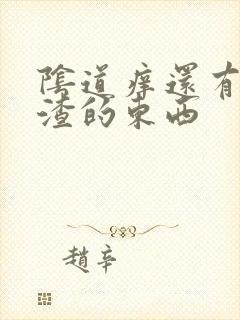 陰道痒還有
渣的東西
趙辛